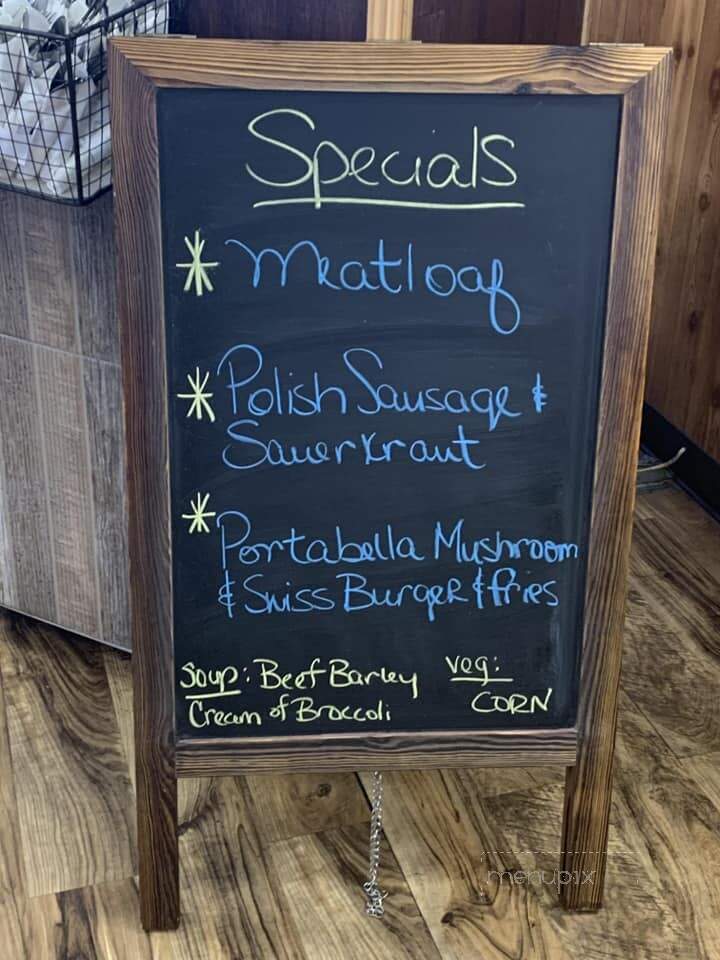 Specials
* Meatloaf
* Polish Sausage &
Sauerkraut
* Portabella Mushroom
& Swiss Burger & fries
Soup: Beef Barley
Cream of Broccoli
veg:
CORN
menupix